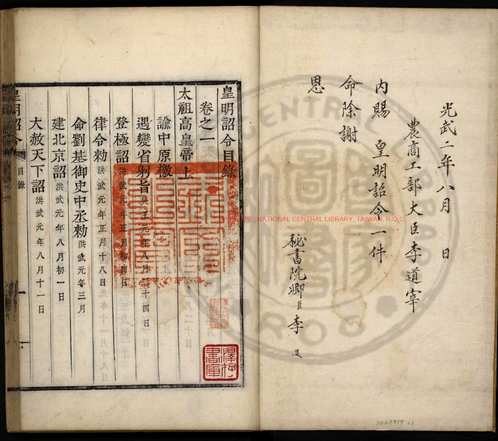 光武二年八月　日
農商工部大臣李道宰
内賜　皇明詔令一件
命除謝
恩
秘書院卿臣李
皇明詔令目錄
卷之一
太祖高皇帝上
諭中原檄
遇變省躬旨
登極詔
律令勑洪武元年正月十八日
命劉基御史中丞勑洪武元年三月
建北京詔洪武元年八月初一日
大赦天下詔洪武元年八月十一日
NATIONAL CENTRAL LIBRARY, TAIWAN, R.O.C.
澤存書庫